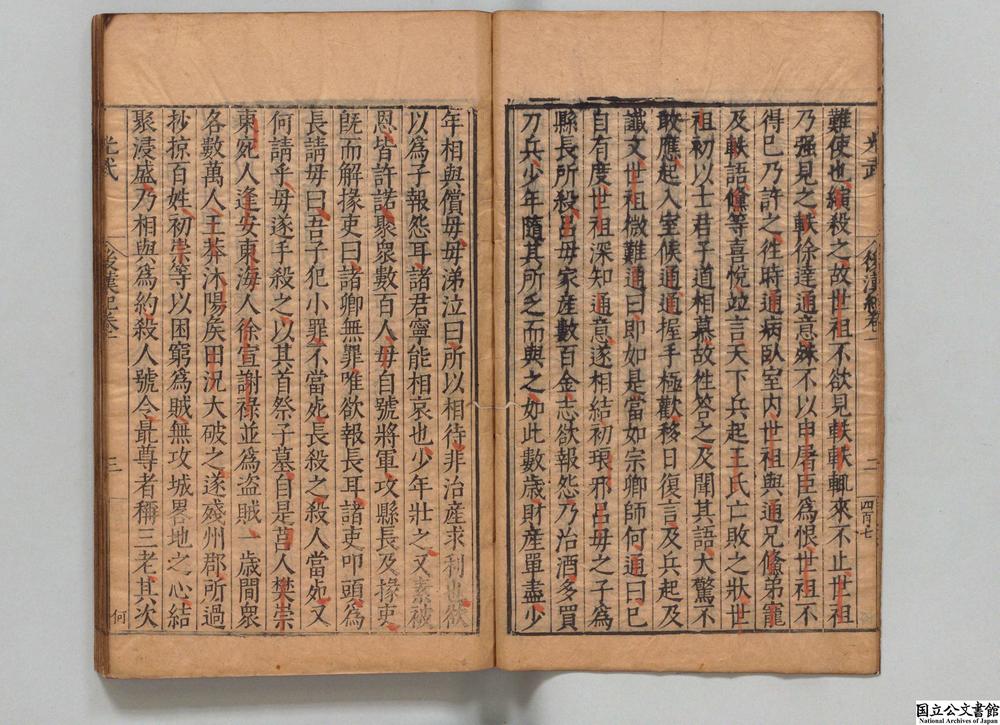 光武
後漢紀卷一
二
難使也縯殺之故世祖不欲見軼軼輒來不止世祖
乃強見之軼徐達通意殊不以申屠臣爲恨世祖不
得已乃許之徃時通病臥室内世祖與通兄儵弟寵
及軼語儵等喜悅竝言天下兵起王氏亡敗之狀世
祖初以士君子道相慕故徃答之及聞其語大驚不
敢應起入室候通通握手極歡移日復言及兵起及
讖文世祖微難通曰即如是當如宗卿師何通曰已
自有度世祖深知通意遂相結初琅邪吕母之子爲
縣長所殺吕母家産數百金志欲報怨乃治酒多買
刀兵少年隨其所乏而與之如此數歲財産單盡少
年相與償母母涕泣曰所以相待非治産求利也欲
以爲子報怨耳諸君寧能相哀也少年壮之又素被
恩皆許諾聚衆數百人母自號將軍攻縣長及掾吏
旣而解掾吏曰諸卿無罪唯欲報長耳諸吏叩頭爲
長請母曰吾子犯小罪不當死長殺之殺人當死又
何請乎母遂手殺之以其首祭子墓自是莒人樊崇
東宛人逢安東海人徐宣謝祿並爲盗賊一歲間衆
各數萬人王莽沐陽矦田況大破之遂殘州郡所過
抄掠百姓初崇等以困窮爲賊無攻城畧地之心結
聚浸盛乃相與爲約殺人號令最尊者稱三老其次
光武
後漢紀卷一
三
何
国立公文書館
National Archives of Japan